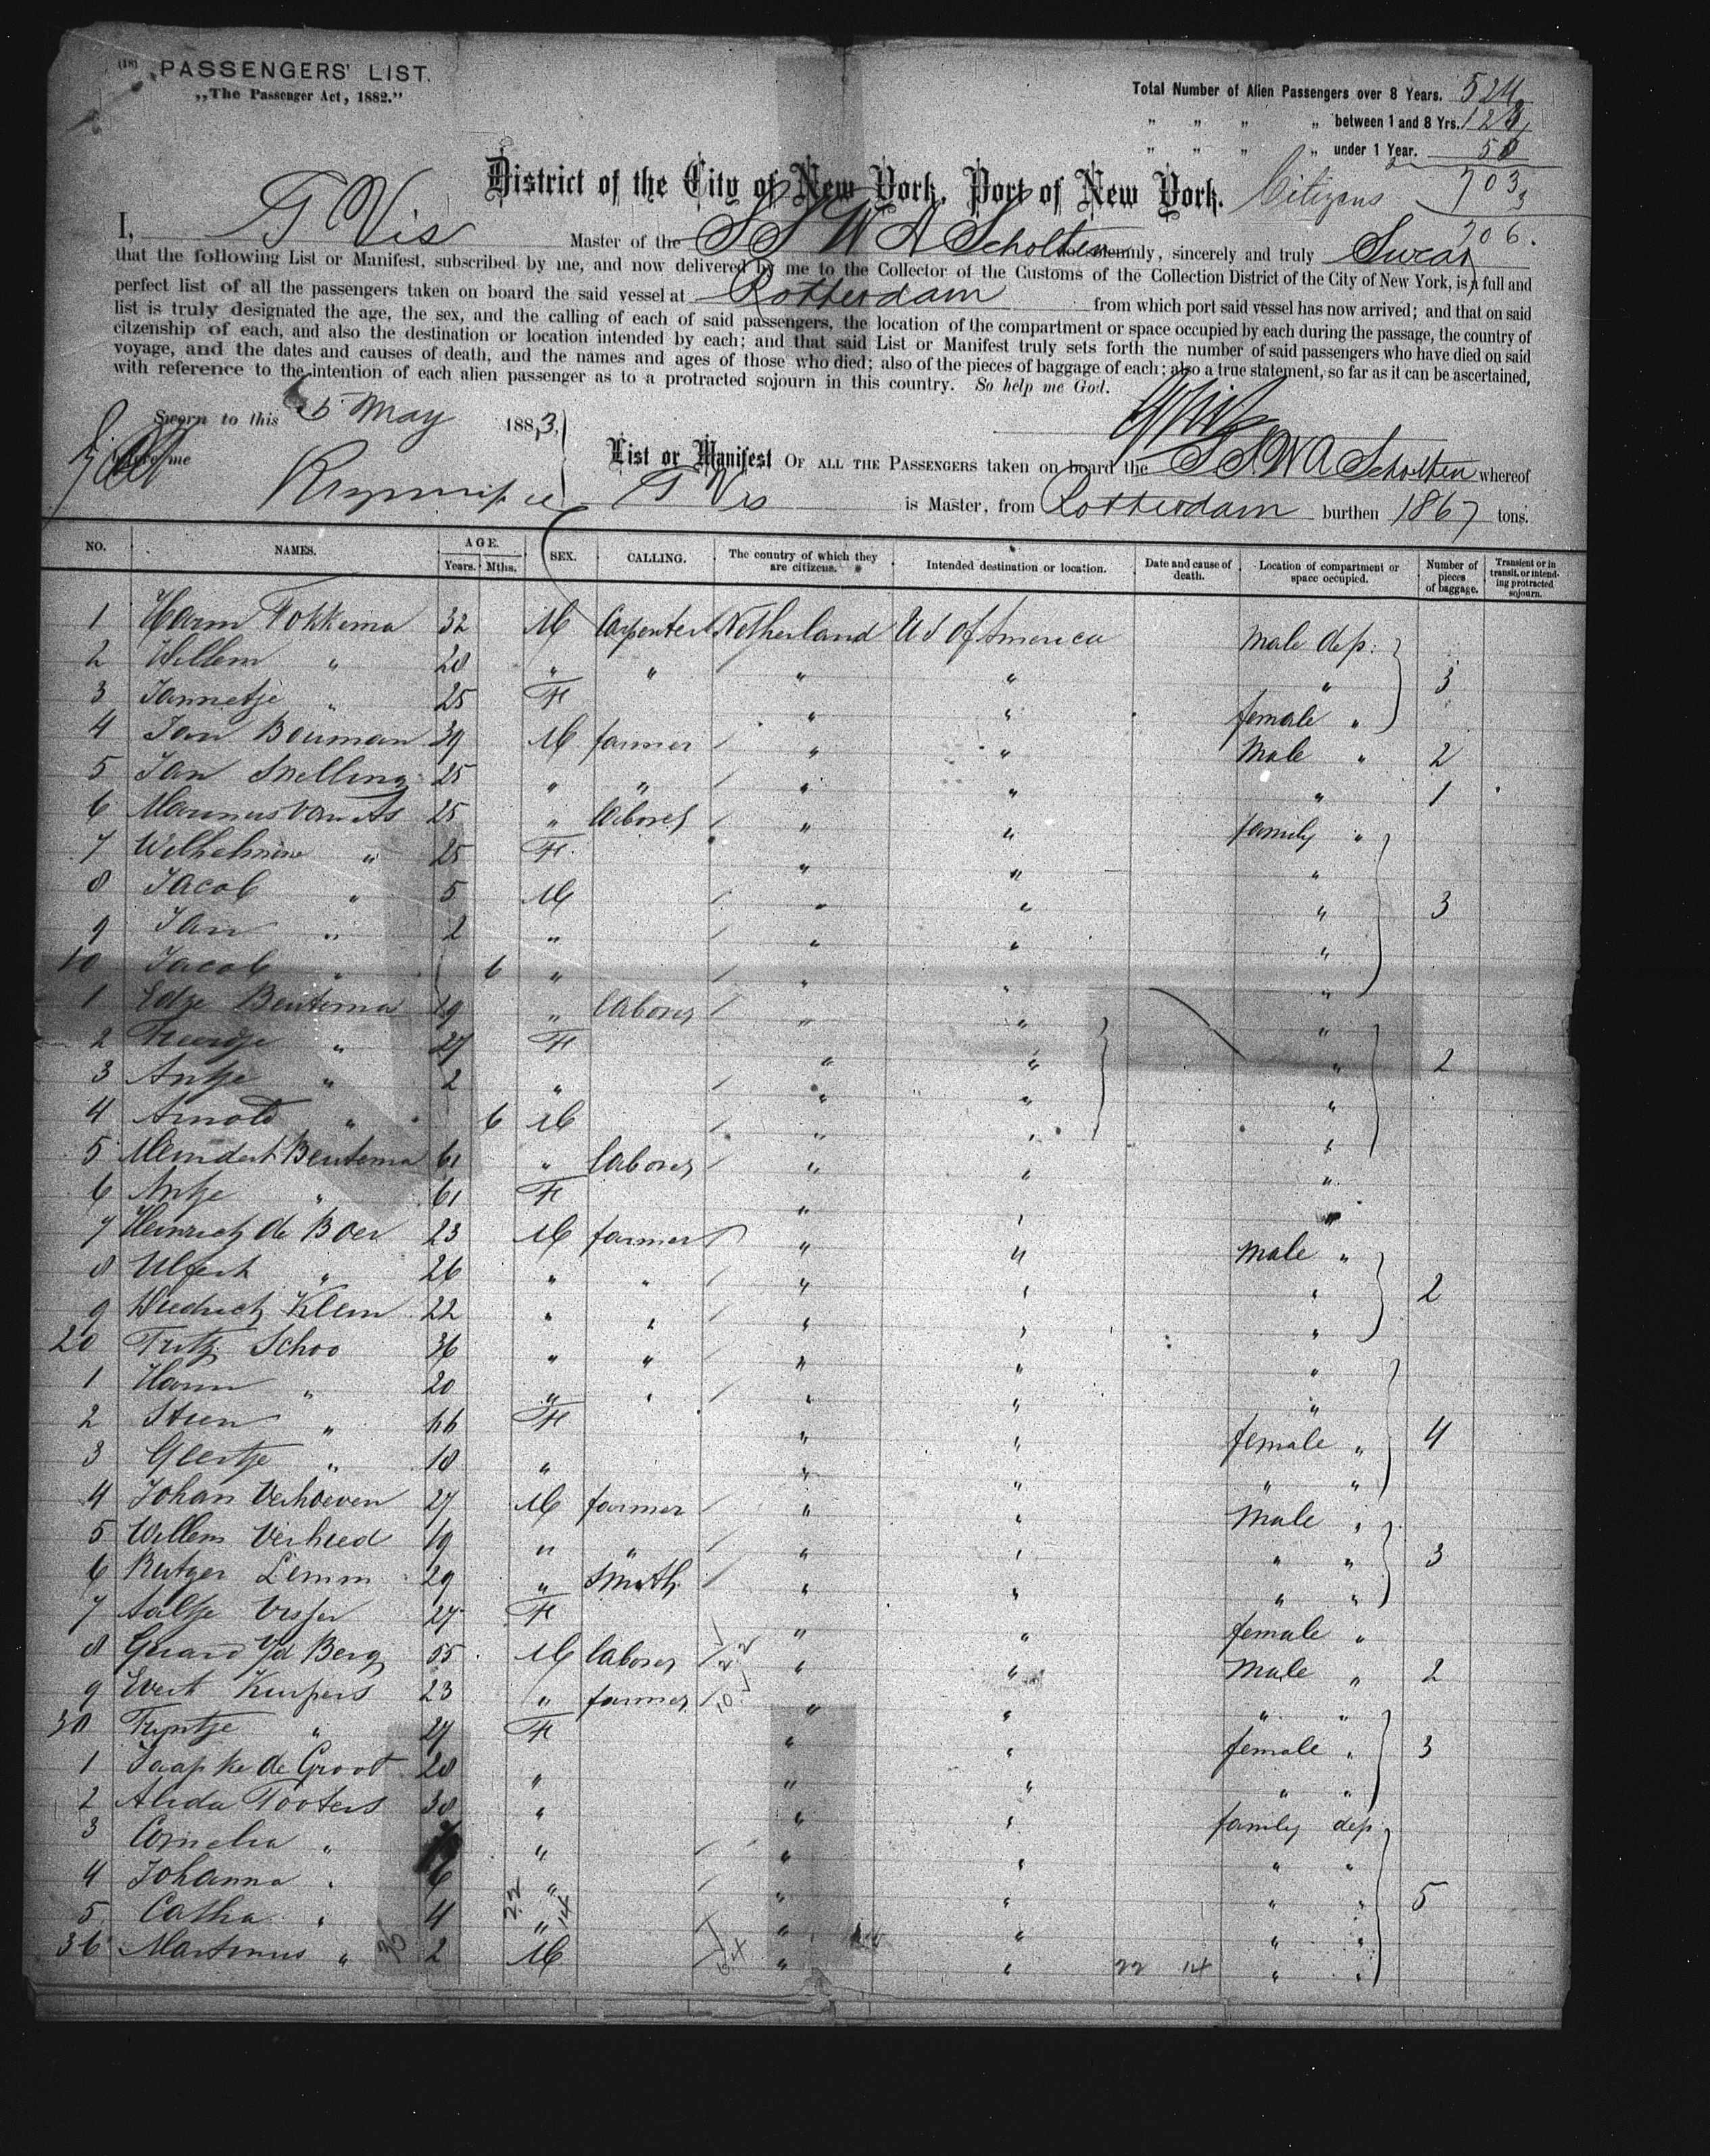 (18) PASSENGERS' LIST.
„The Passenger Act, 1882.”
Total Number of Alien Passengers over 8 Years. 524
„ „ „ „ between 1 and 8 Yrs. 123
„ „ „ „ under 1 Year. 56
703
District of the City of New York, Port of New York.
Citizens 3
706.
I, T Vis Master of the SS W A Scholten do solemnly, sincerely and truly Swear
that the following List or Manifest, subscribed by me, and now delivered by me to the Collector of the Customs of the Collection District of the City of New York, is a full and
perfect list of all the passengers taken on board the said vessel at Rotterdam from which port said vessel has now arrived; and that on said
list is truly designated the age, the sex, and the calling of each of said passengers, the location of the compartment or space occupied by each during the passage, the country of
citzenship of each, and also the destination or location intended by each; and that said List or Manifest truly sets forth the number of said passengers who have died on said
voyage, and the dates and causes of death, and the names and ages of those who died; also of the pieces of baggage of each; also a true statement, so far as it can be ascertained,
with reference to the intention of each alien passenger as to a protracted sojourn in this country. So help me God.
Sworn to this 5 May 1883,
before me
List or Manifest OF ALL THE PASSENGERS taken on board the SS W A Scholten whereof
T Vis is Master, from Rotterdam burthen 1867 tons.
NO. NAMES. AGE. Years. Mths. SEX. CALLING. The country of which they are citizens. Intended destination or location. Date and cause of death. Location of compartment or space occupied. Number of pieces of baggage. Transient or in transit, or intending protracted sojourn.
1 Harm Fokkema 32 M Carpenter Netherland U S Of America Male dep:
2 Willem „ 28 „ „ „ „ „ 3
3 Jannetje „ 25 F „ „ female „
4 Jan Bouman 39 M farmer „ „ Male „ 2
5 Jan Snelling 25 „ „ „ „ „ 1
6 Marinus van As 25 „ laborer „ „ family „
7 Wilhelmina „ 25 F „ „ „
8 Jacob „ 5 M „ „ „ 3
9 Jan „ 2 „ „ „ „
10 Jacob „ 6 „ „ „ „
1 Edze Beutema 29 „ laborer „ „ „
2 „ 27 F „ „ „ 2
3 Antje „ 2 „ „ „ „
4 Arnold „ 6 M „ „ „
5 Meindert Beutema 61 „ laborer „ „ „
6 Antje „ 61 F „ „ „
7 Heinrich de Boer 23 M farmer „ „ Male „
8 Ulfert „ 26 „ „ „ „ „ 2
9 Diedrich Klein 22 „ „ „ „ „
20 Fritz Schoo 36 „ „ „ „ „
1 Harm „ 20 „ „ „ „ „
2 Stien „ 66 F „ „ female „ 4
3 Geertje „ 18 „ „ „ „ „
4 Johan Verhoeven 27 M farmer „ „ Male „
5 Willem Verhoed 19 „ „ „ „ „ „ 3
6 Rutger Lemm 29 „ Smith „ „ „ „
7 Aaltje Visser 27 F „ „ female „
8 Gerard v/d Berg 55 M laborer „ „ Male „ 2
9 Evert Kuipers 23 „ farmer „ „ „ „
30 Tryntje „ 27 F „ „ female „ 3
1 Jaapke de Groot 28 „ „ „ „ „
2 Alida Tooters 38 „ „ „ family dep
3 Cornelia „ „ „ „ „ „
4 Johanna „ 6 „ „ „ „ „ 5
5 Catha „ 4 „ „ „ „ „
36 Martinus „ 2 M „ „ „ „
22 14